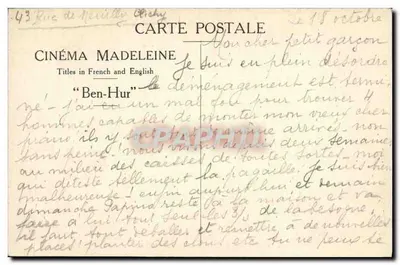 43 Rue de Neuilly Clichy
le 18 octobre
CARTE POSTALE
Mon cher petit garçon
CINÉMA MADELEINE
Titles in French and English
"Ben-Hur"
Je suis en plein désordre
le déménagement est termi-
né - J'ai eu un mal fou pour trouver 4
hommes capables de monter mon vieux cher
piano, il y
arrivés, non
sans peine! nous deux semaines
au milieu des caisses de toutes sortes - moi
qui déteste tellement la pagaille je suis bien
malheureuse! enfin aujourd'hui et demain
dimanche Papino reste à la maison et va
faire à lui tout seul les 3/4 de la besogne.
il faut tout déballer et remettre à de nouvelles
places! planter des clous etc tu ne peux te
CPAPHIL.FR